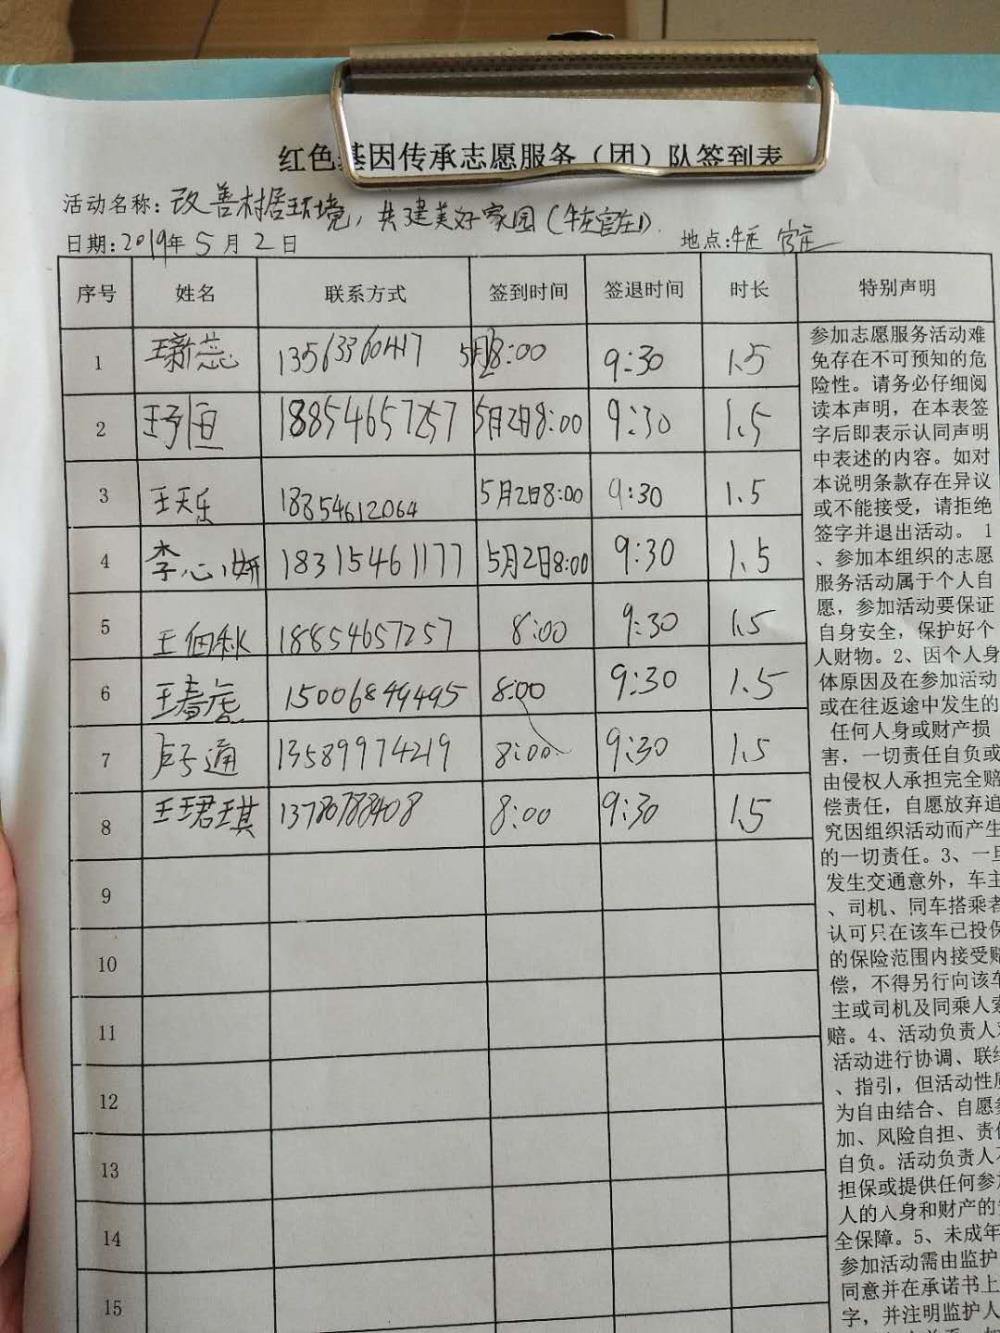 红色基因传承志愿服务（团）队签到表
活动名称：改善村居环境，共建美好家园（牛庄官庄）
日期：2019年5月2日 地点：牛庄 官庄
序号 姓名 联系方式 签到时间 签退时间 时长 特别声明
1 王新蕊 13563360417 5月2 8:00 9:30 1.5
2 王予恒 18854657257 5月2日8:00 9:30 1.5
3 王天乐 18354612064 5月2日8:00 9:30 1.5
4 李心妍 18315461177 5月2日8:00 9:30 1.5
5 王佃秋 18854657257 8:00 9:30 1.5
6 王春 15006849495 8:00 9:30 1.5
7 卢子通 13589974219 8:00 9:30 1.5
8 王珺琪 13780788408 8:00 9:30 1.5
9
10
11
12
13
14
15
参加志愿服务活动难
免存在不可预知的危
险性。请务必仔细阅
读本声明，在本表签
字后即表示认同声明
中表述的内容。如对
本说明条款存在异议
或不能接受，请拒绝
签字并退出活动。 1
、参加本组织的志愿
服务活动属于个人自
愿，参加活动要保证
自身安全，保护好个
人财物。2、因个人身
体原因及在参加活动
或在往返途中发生的
任何人身或财产损
害，一切责任自负或
由侵权人承担完全赔
偿责任，自愿放弃追
究因组织活动而产生
的一切责任。3、一旦
发生交通意外，车主
、司机、同车搭乘者
认可只在该车已投保
的保险范围内接受赔
偿，不得另行向该车
主或司机及同乘人索
赔。4、活动负责人对
活动进行协调、联络
、指引，但活动性质
为自由结合、自愿参
加、风险自担、责任
自负。活动负责人不
担保或提供任何参加
人的人身和财产的安
全保障。5、未成年
参加活动需由监护
同意并在承诺书上
字，并注明监护人